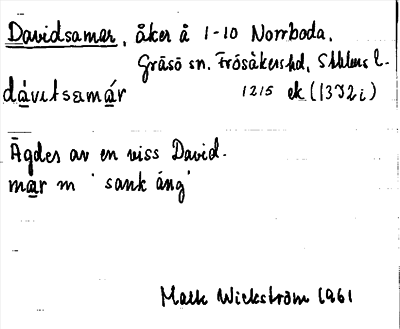 Davidsamar, åker å 1-10 Norrboda,
Gräsö sn. Frösåkers hd, Sthlms l.
dàvitsamár 1215 ek (1372 i)
Ägdes av en viss David.
mar m 'sank äng'
Mats Wickström 1961